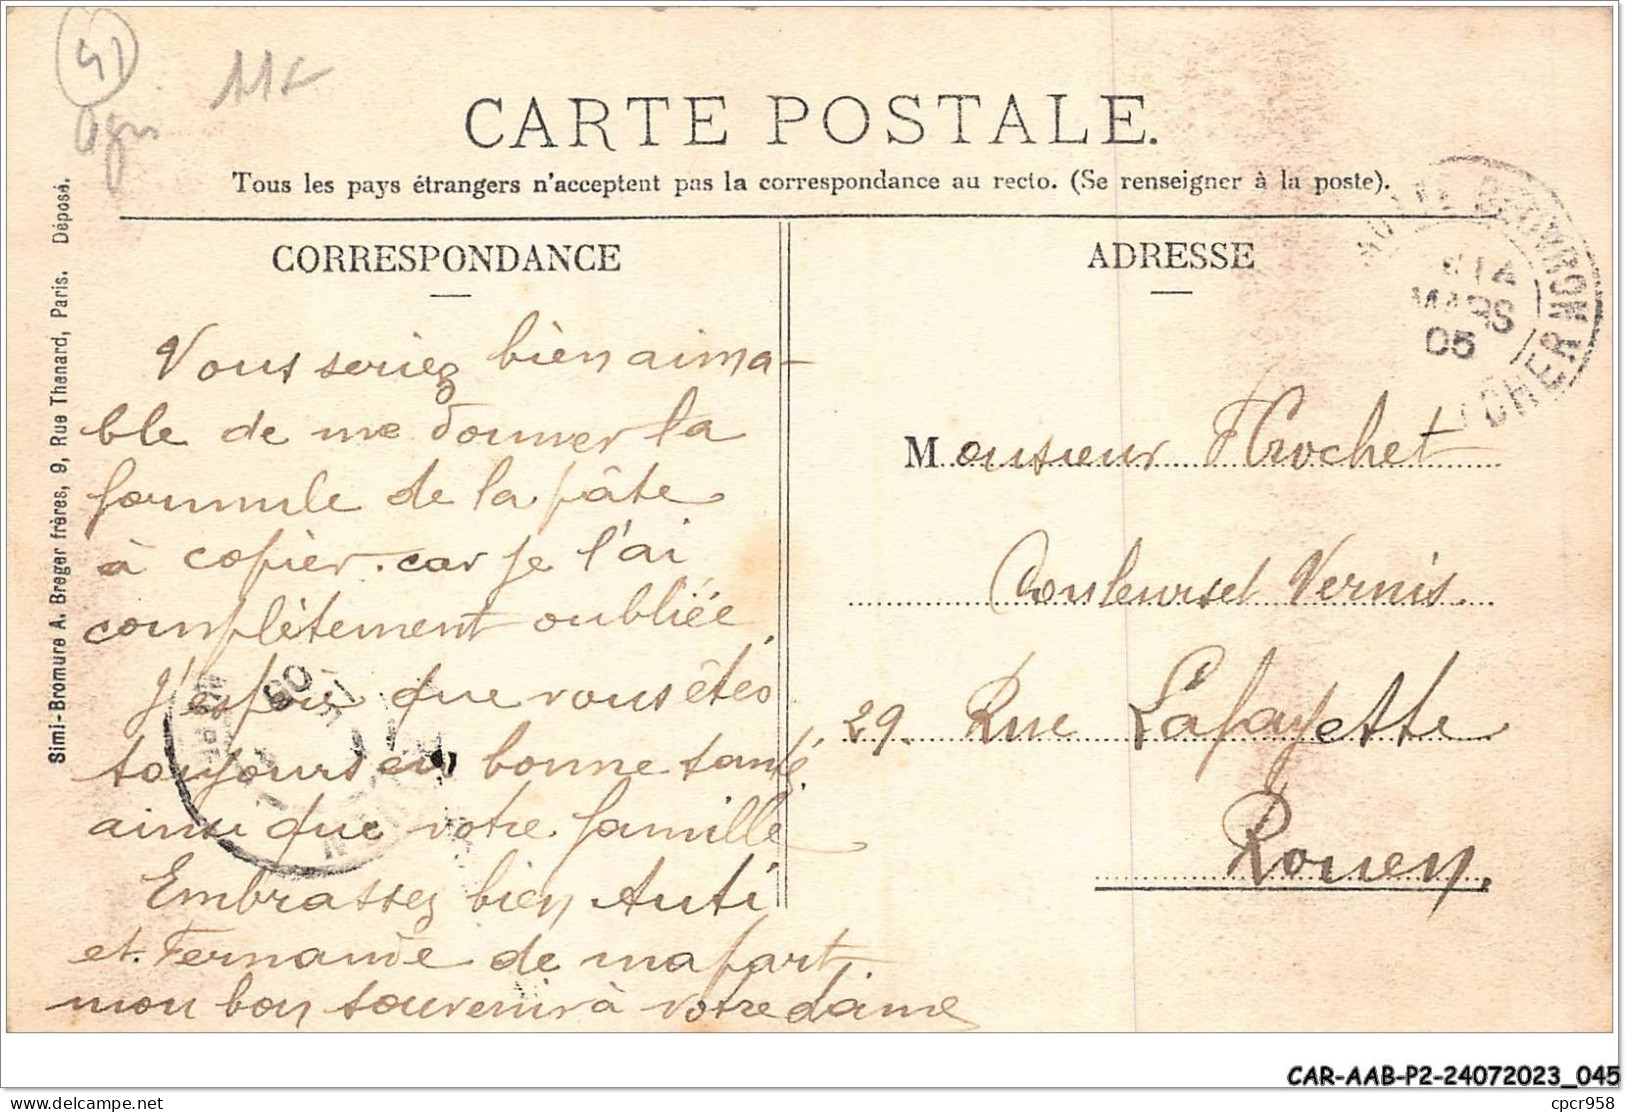 41
Agri
11€
CARTE POSTALE.
Tous les pays étrangers n'acceptent pas la correspondance au recto. (Se renseigner à la poste).
CORRESPONDANCE
Vous seriez bien aima-
ble de me donner la
formule de la pâte
à copier. car je l'ai
complètement oubliée.
J'espère que vous êtes
toujours en bonne santé,
ainsi que votre famille
Embrassez bien
et Fernande de ma part.
mon bon souvenir à votre dame
ADRESSE
14
MARS
05
CHER
Monsieur Crochet
Couleurs et Vernis.
29. Rue Lafayette
Rouen.
05
Simi-Bromure A. Breger frères, 9, Rue Thenard, Paris. Déposé.
CAR-AAB-P2-24072023_045
delcampe.net
cpcr958